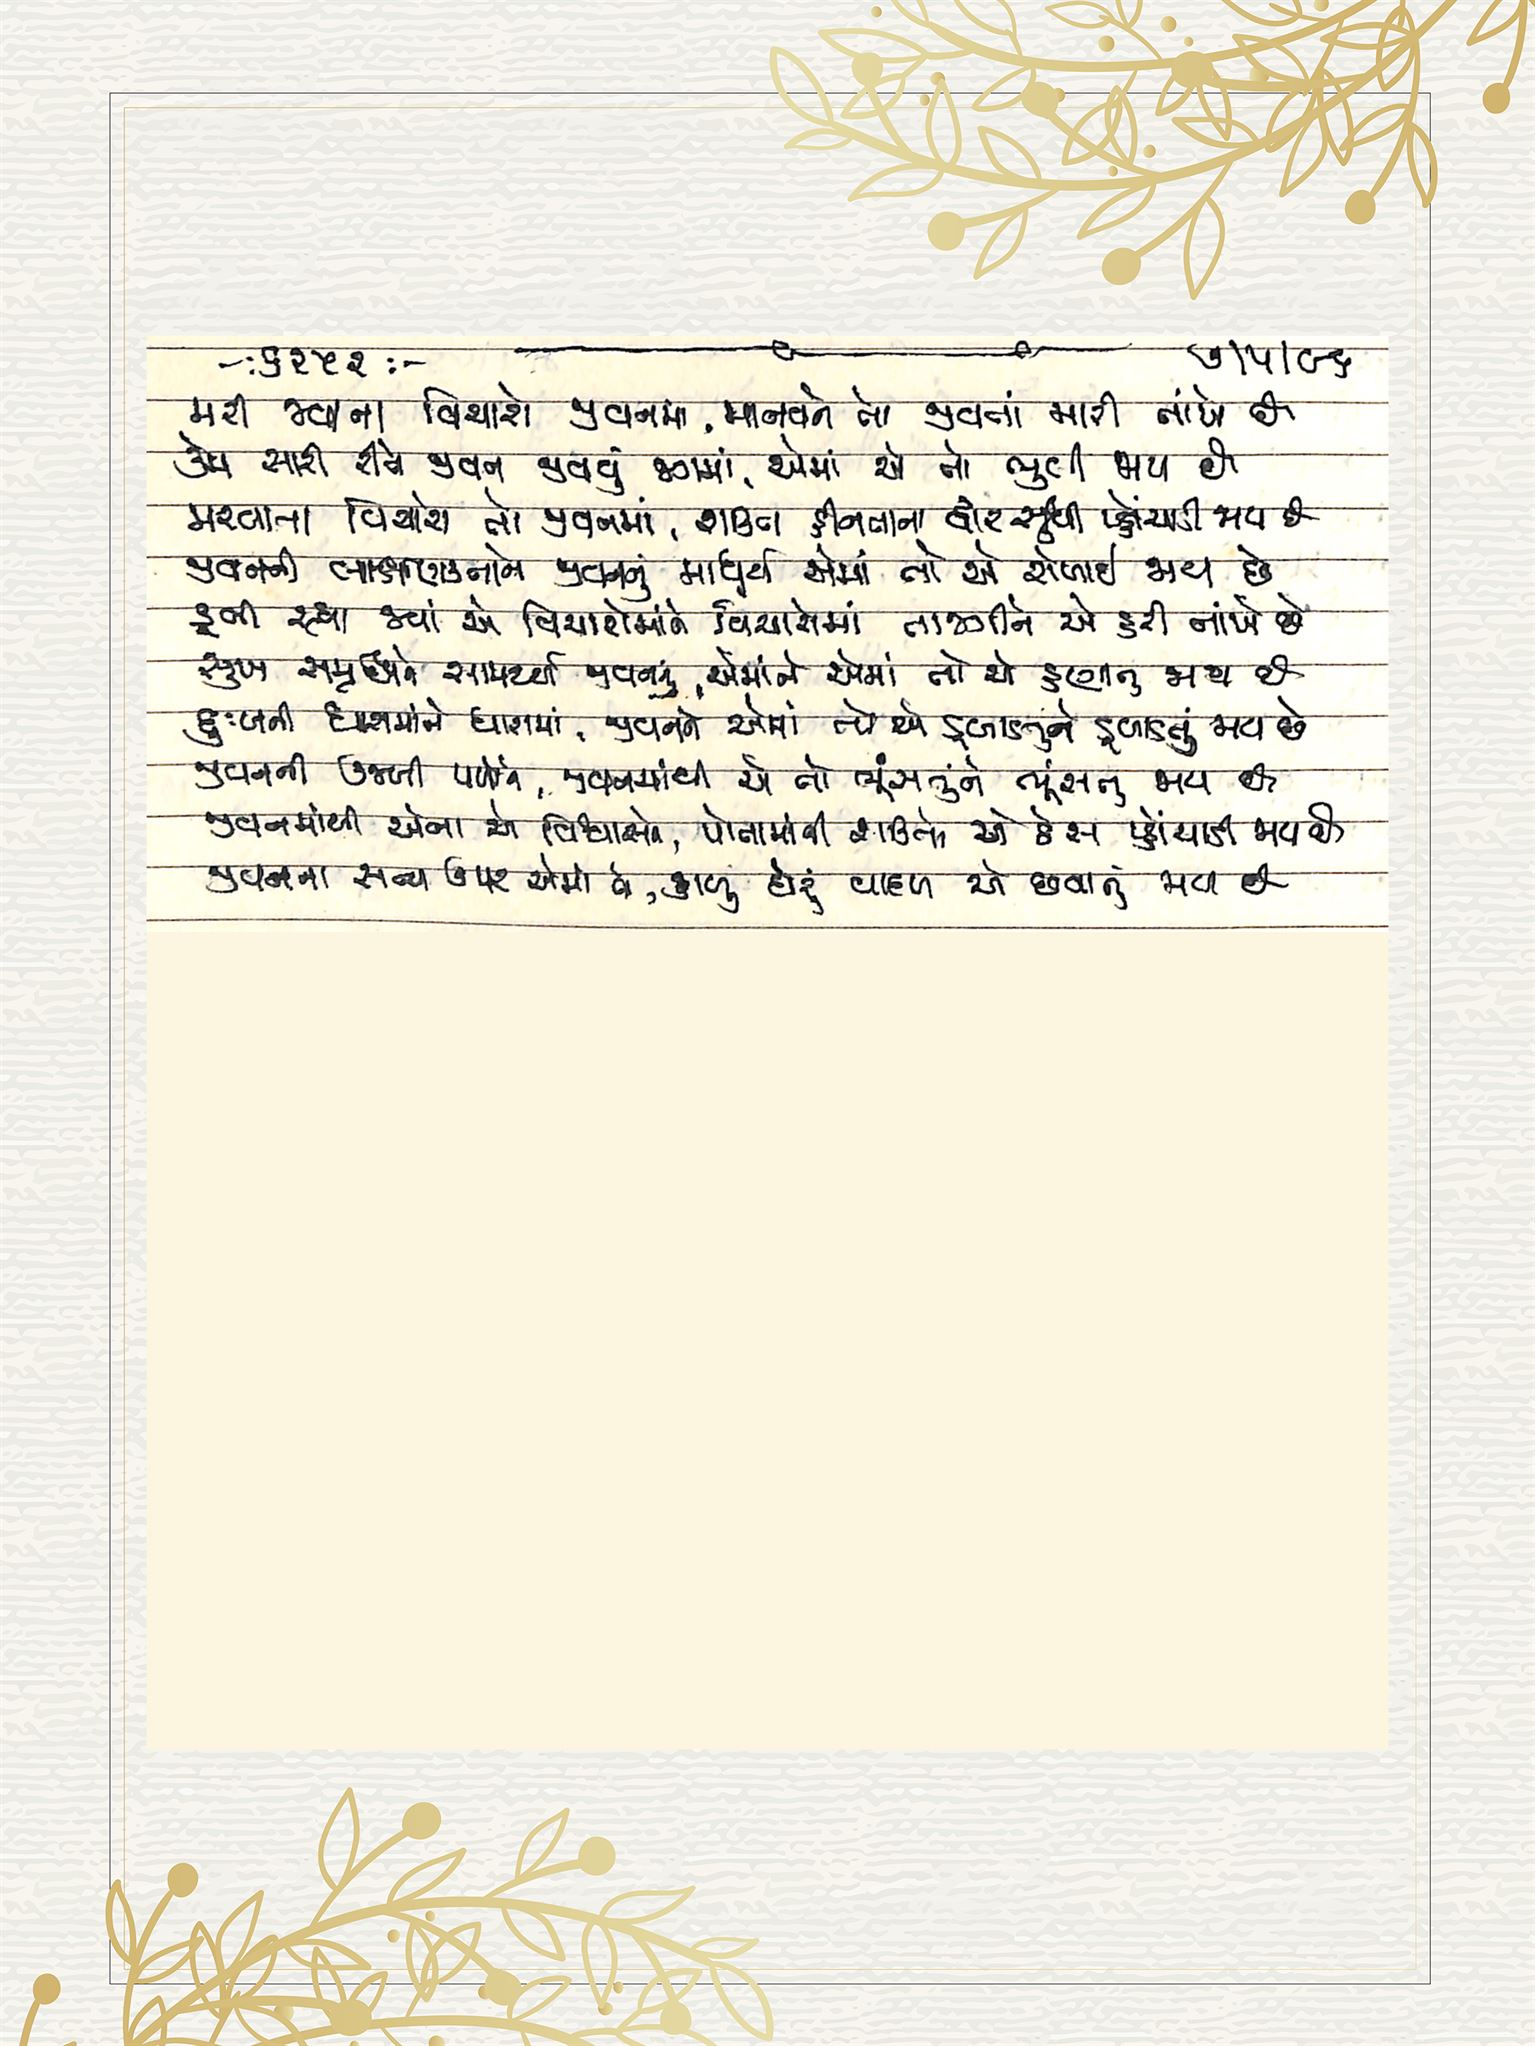 -: ૬૨૫૨ :- ૭/૫/૯૬
મરી જવાના વિચારો જીવનમાં, માનવને તો જીવતાં મારી નાંખે છે
કેમ સારી રીતે જીવન જીવવું જગમાં, એમાં એ તો ભુલી જાય છે
મરવાના વિચારો તો જીવનમાં, શક્તિ હીનતાના દ્વાર સુધી પ્હોંચાડી જાય છે
જીવનની લાક્ષણિક્તાને જીવનનું માધુર્ય એમાં તો એ રોળાઈ જાય છે
ડૂબી રહ્યા જ્યાં એ વિચારોમાંને વિચારોમાં તાજગીને એ હરી નાંખે છે
સુખ સમૃદ્ધિને સામર્થ્ય જીવનનું, એમાંને એમાં તો એ હણાતુ જાય છે
દુઃખની ધારામાંને ધારામાં, જીવનને એમાં તો એ ડૂબાડતુંને ડૂબાડતું જાય છે
જીવનની ઉજળી પળોને, જીવનમાંથી એ તો ભૂંસતુંને ભૂંસતુ જાય છે
જીવનમાંથી એના એ વિશ્વાસને, પોતામાંની શક્તિને એ ઠેસ પ્હોંચાડી જાય છે
જીવનના સત્ય ઉપર એમાં તો, કાળુ ઘેરું વાદળ એ છવાતું જાય છે